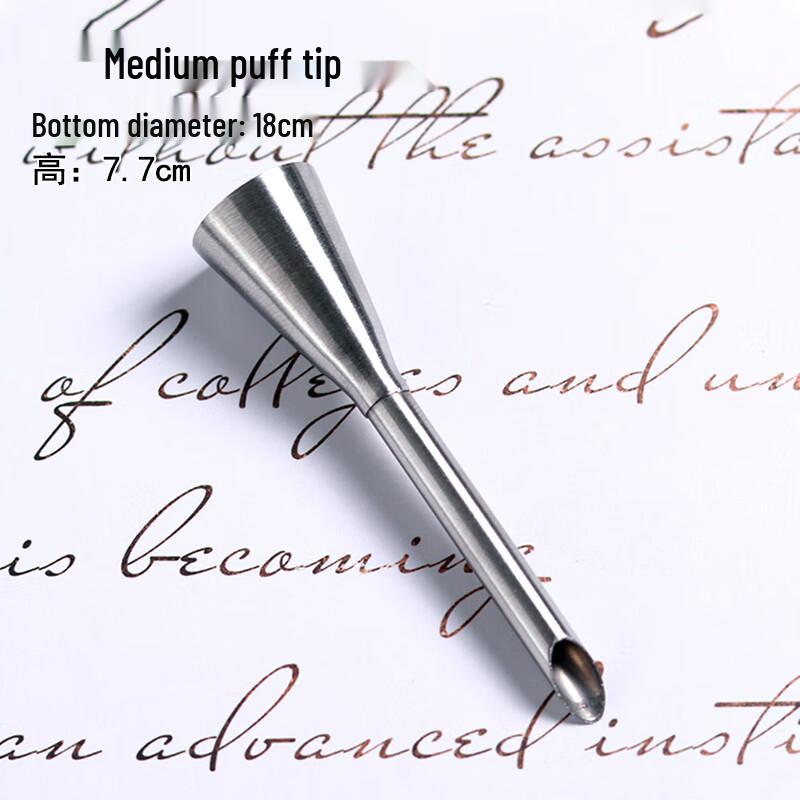 Medium puff tip
Bottom diameter: 18cm
高：7.7cm
without the assista
of colleges and un
is becoming
an advanced insti